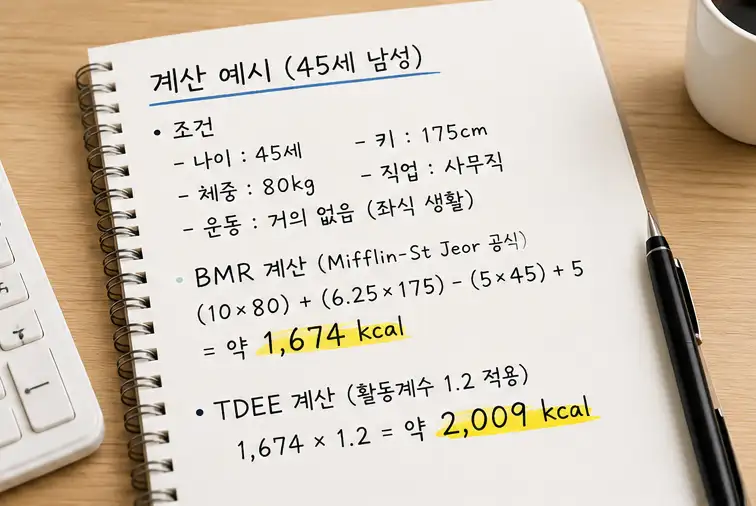 계산 예시 (45세 남성)
• 조건
- 나이 : 45세
- 키 : 175cm
- 체중 : 80kg
- 직업 : 사무직
- 운동 : 거의 없음 (좌식 생활)
• BMR 계산 (Mifflin-St Jeor 공식)
(10×80) + (6.25×175) - (5×45) + 5
= 약 1,674 kcal
• TDEE 계산 (활동계수 1.2 적용)
1,674 × 1.2 = 약 2,009 kcal